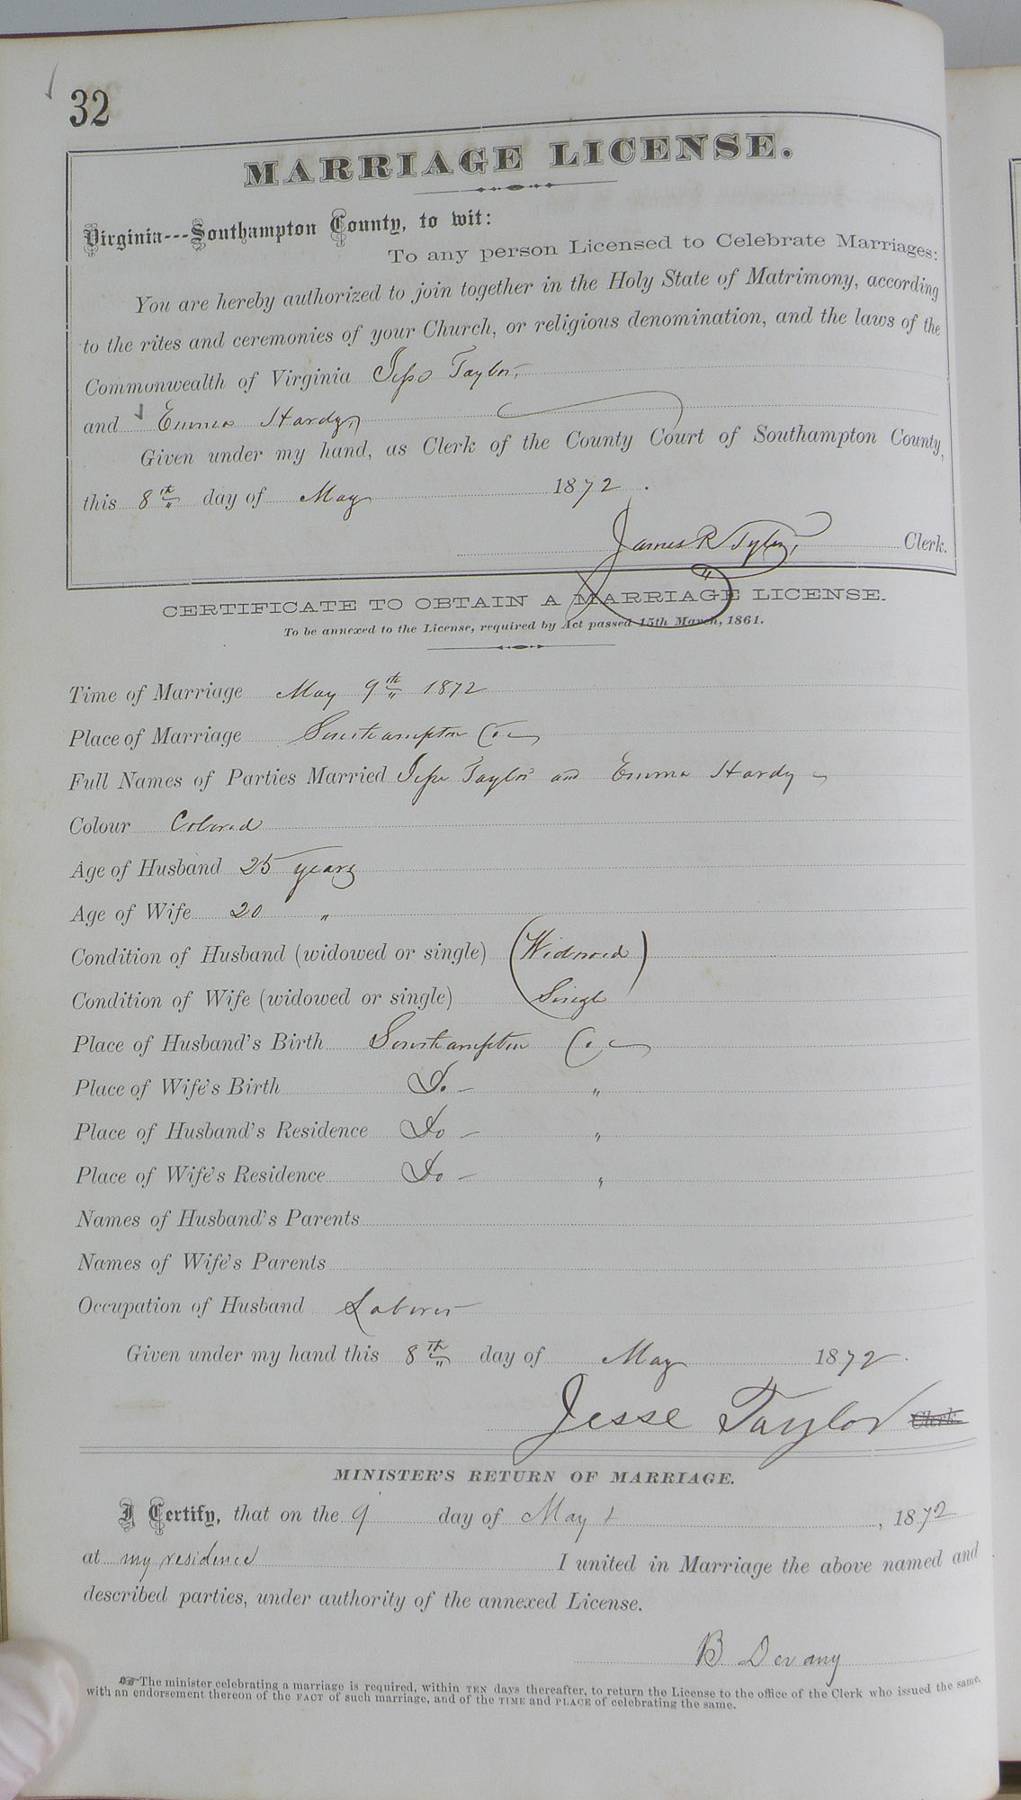 32
MARRIAGE LICENSE.
Virginia---Southampton County, to wit:
To any person Licensed to Celebrate Marriages:
You are hereby authorized to join together in the Holy State of Matrimony, according
to the rites and ceremonies of your Church, or religious denomination, and the laws of the
Commonwealth of Virginia Jesse Taylor,
and Emma Hardy,
Given under my hand, as Clerk of the County Court of Southampton County,
this 8th day of May 1872.
James R Tyler, Clerk.
CERTIFICATE TO OBTAIN A MARRIAGE LICENSE.
To be annexed to the License, required by Act passed 15th March, 1861.
Time of Marriage May 9th 1872
Place of Marriage Southampton Co
Full Names of Parties Married Jesse Taylor and Emma Hardy
Colour Colored
Age of Husband 25 years
Age of Wife 20 "
Condition of Husband (widowed or single) (Widowed)
Condition of Wife (widowed or single) Single
Place of Husband's Birth Southampton Co
Place of Wife's Birth Do - "
Place of Husband's Residence Do - "
Place of Wife's Residence Do - "
Names of Husband's Parents
Names of Wife's Parents
Occupation of Husband Laborer
Given under my hand this 8th day of May 1872.
Jesse Taylor Clerk.
MINISTER'S RETURN OF MARRIAGE.
I Certify, that on the 9 day of May, 1872
at my residence I united in Marriage the above named and
described parties, under authority of the annexed License.
B Devany
☞ The minister celebrating a marriage is required, within TEN days thereafter, to return the License to the office of the Clerk who issued the same,
with an endorsement thereon of the FACT of such marriage, and of the TIME and PLACE of celebrating the same.